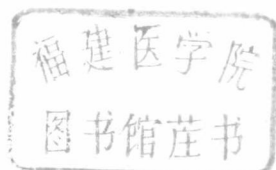 福建医学院
图书馆茬书